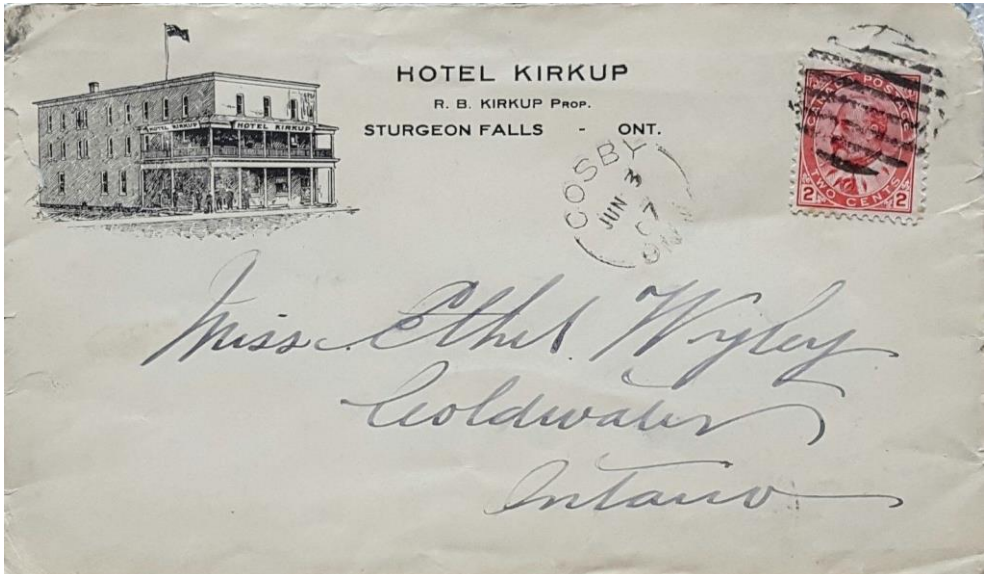 HOTEL KIRKUP
R. B. KIRKUP PROP.
STURGEON FALLS - ONT.
HOTEL KIRKUP
HOTEL KIRKUP
COSBY
JUN 3
07
ONT
POSTAGE
TWO CENTS
2 2
Miss Ethel Wyley
Coldwater
Ontario